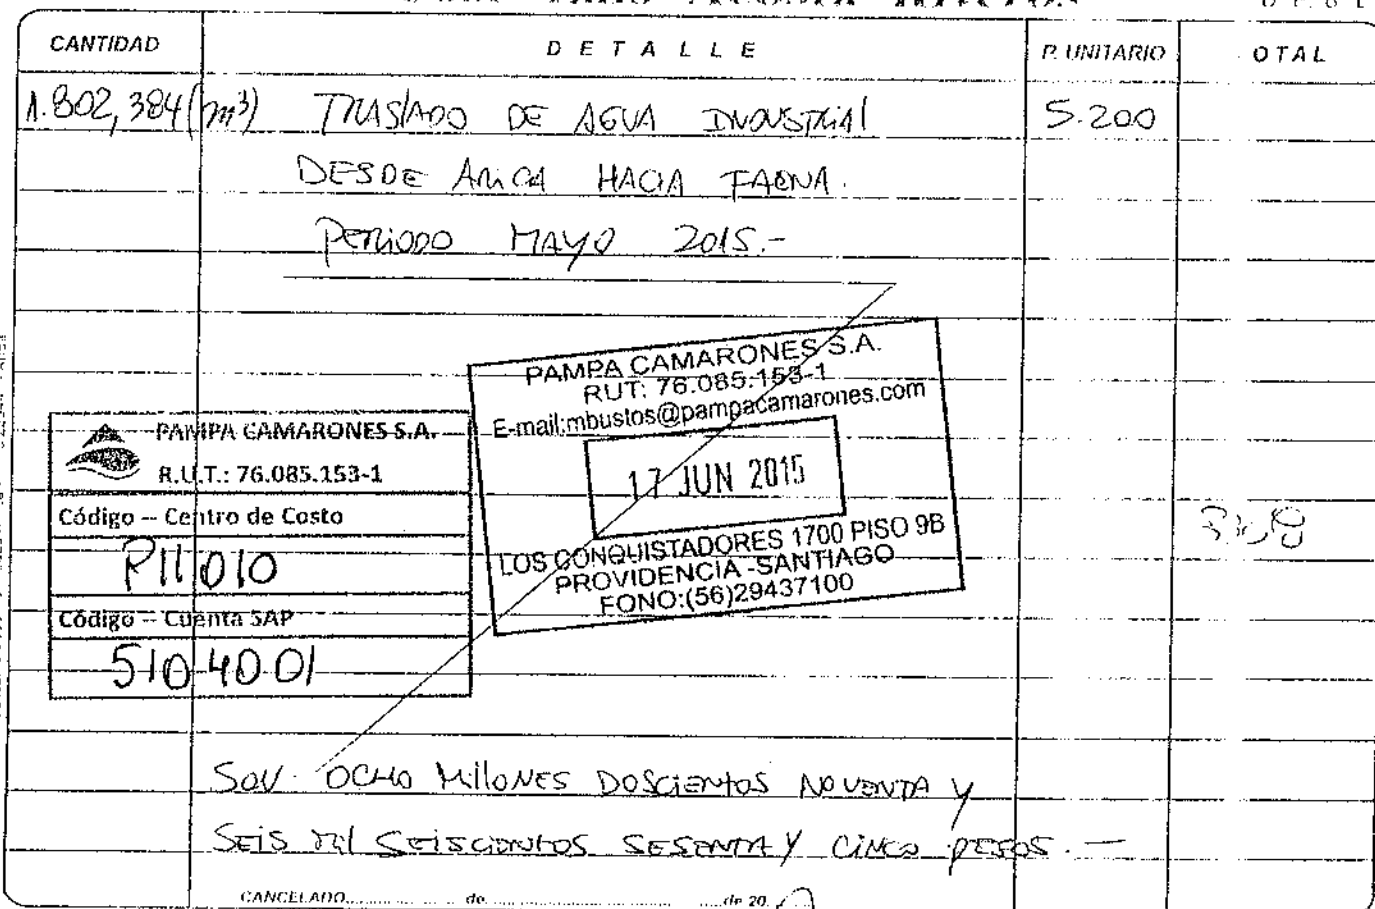 CANTIDAD DETALLE P. UNITARIO OTAL
1.802,384 (m³) TRASLADO DE AGUA INDUSTRIAL 5.200
DESDE ARICA HACIA FAENA.
PERIODO MAYO 2015.-
PAMPA CAMARONES S.A.
RUT: 76.085.153-1
E-mail:mbustos@pampacamarones.com
17 JUN 2015
LOS CONQUISTADORES 1700 PISO 9B
PROVIDENCIA -SANTIAGO
FONO:(56)29437100
PAMPA CAMARONES S.A.
R.U.T.: 76.085.153-1
Código -- Centro de Costo
P11010
Código -- Cuenta SAP
5104001
SON: OCHO MILLONES DOSCIENTOS NOVENTA Y
SEIS MIL SEISCIENTOS SESENTA Y CINCO PESOS.-
CANCELADO............ de ............................ de 20